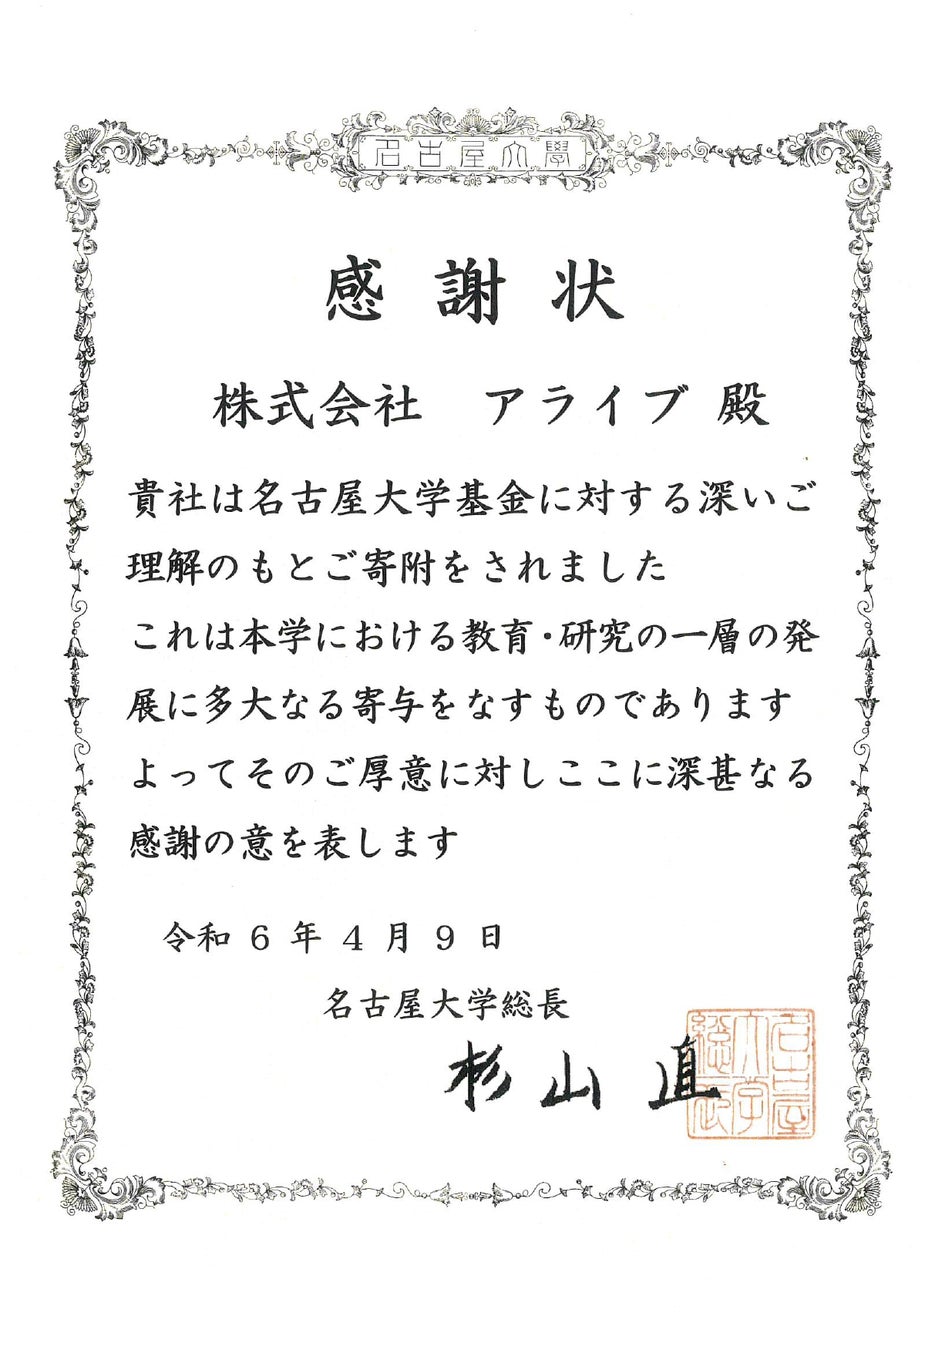 名古屋大學
感謝状
株式会社　アライブ 殿
貴社は名古屋大学基金に対する深いご
理解のもとご寄附をされました
これは本学における教育・研究の一層の発
展に多大なる寄与をなすものであります
よってそのご厚意に対しここに深甚なる
感謝の意を表します
令和 6 年 4 月 9 日
名古屋大学総長
杉山 直
名古屋
大学
総長